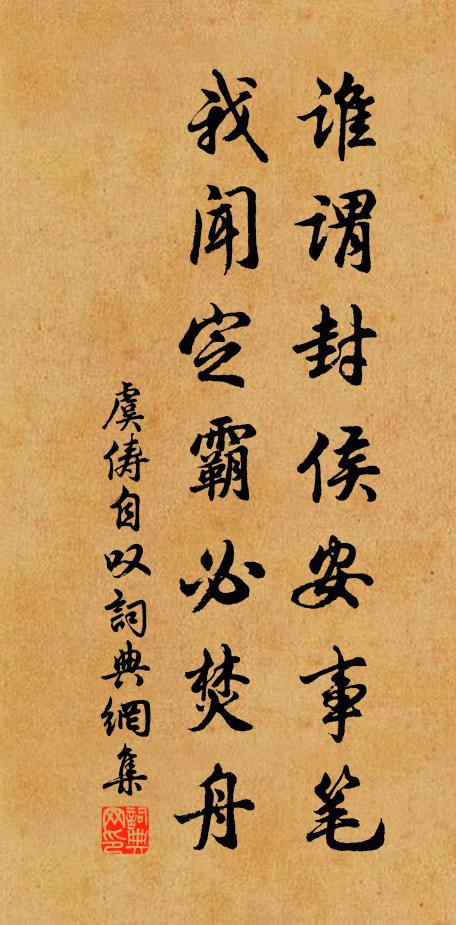 谁谓封侯安事笔
我闻定霸必焚舟
虞俦自叹詞典網集
詞典网印